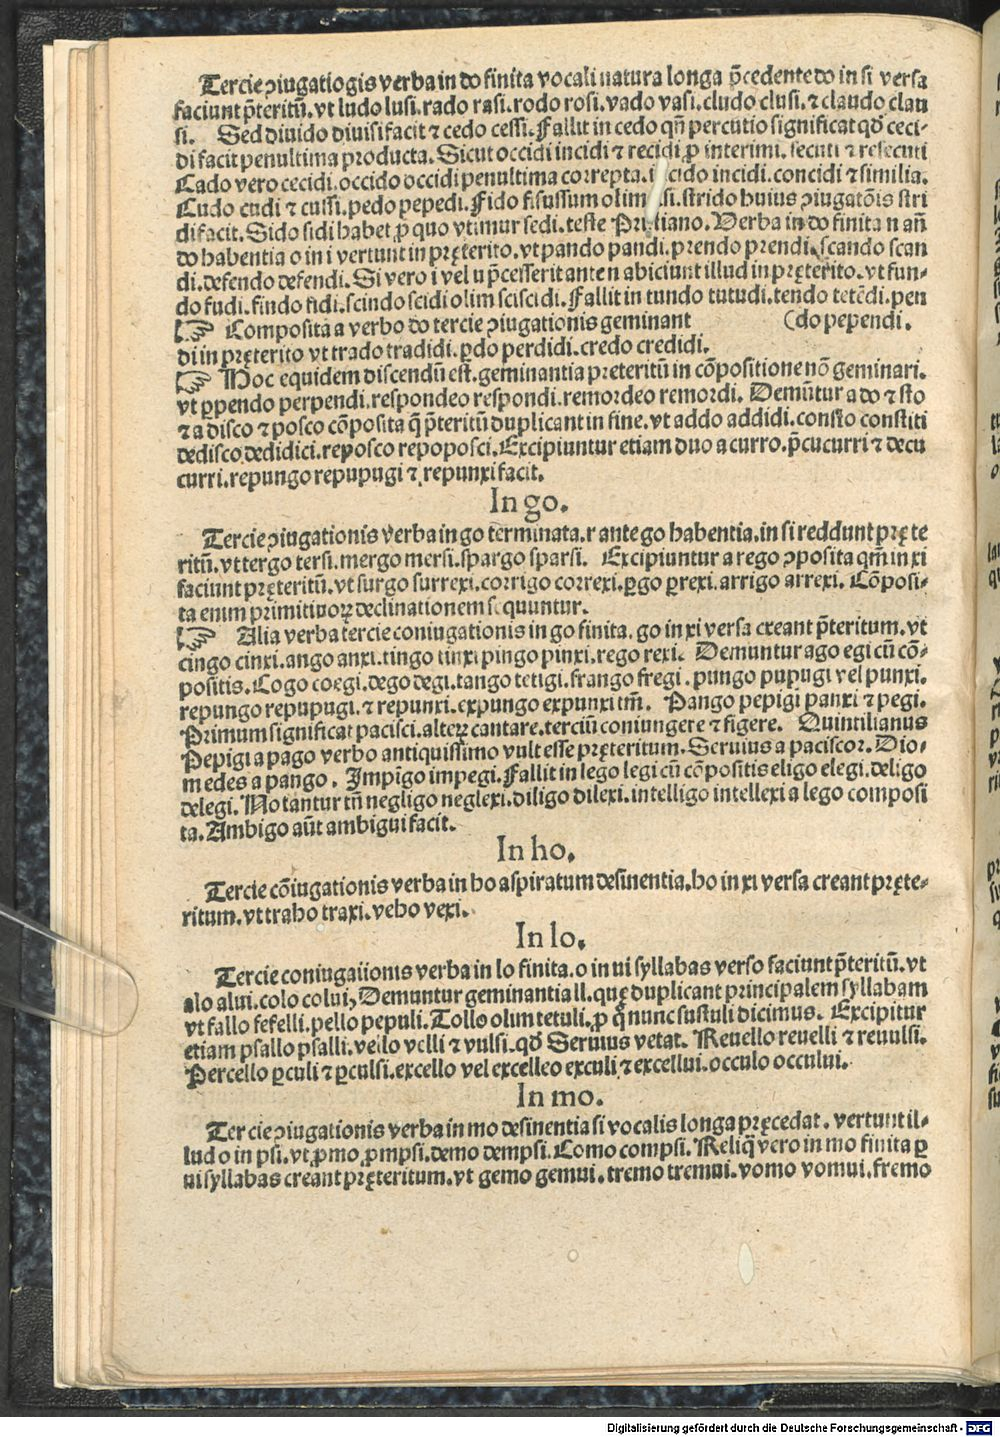 Tercie ↄiugatiogis verba in do finita vocali natura longa p̄cedente do in si versa
faciunt p̄teritū. vt ludo lusi. rado rasi. rodo rosi. vado vasi. cludo clusi. ⁊ claudo clau
si. Sed diuido diuisi facit ⁊ cedo cessi. Fallit in cedo qn̄ percutio significat qđ ceci-
di facit penultima producta. Sicut occidi incidi ⁊ recidi ꝓ interimi. secuti ⁊ resecuti
Cado vero cecidi. occido occidi penultima correpta. incido incidi. concidi ⁊ similia.
Cudo cudi ⁊ cussi. pedo pepedi. Fido fisussum olim si. strido huius ↄiugatōis stri
di facit. Sido sidi habet ꝓ quo vtimur sedi. teste Pristiano. Verba in do finita n añ
do habentia o in i vertunt in pręterito. vt pando pandi. prendo prendi. scando scan
di. defendo defendi. Si vero i vel u p̄cesserit ante n abiciunt illud in pręterito. vt fun-
do fudi. findo fidi. scindo scidi olim sciscidi. Fallit in tundo tutudi. tendo tetēdi. pen
☞ Composita a verbo do tercie ↄiugationis geminant (do pependi.
di in pręterito vt trado tradidi. ꝑdo perdidi. credo credidi.
☞ Hoc equidem discendū est. geminantia preteritū in cōpositione nō geminari.
vt ꝑpendo perpendi. respondeo respondi. remordeo remordi. Demūtur a do ⁊ sto
⁊ a disco ⁊ posco cōposita q̄ p̄teritū duplicant in fine. vt addo addidi. consto constiti
dedisco dedidici. reposco repoposci. Excipiuntur etiam duo a curro. p̄cucurri ⁊ decu
curri. repungo repupugi ⁊ repunxi facit.
In go.
Tercie ↄiugationis verba in go terminata. r ante go habentia. in si reddunt pręte
ritū. vt tergo tersi. mergo mersi. spargo sparsi. Excipiuntur a rego ↄposita qm̄ in xi
faciunt pręteritū. vt surgo surrexi. corrigo correxi. ꝑgo ꝑrexi. arrigo arrexi. Cōposi-
ta enim primitiuoꝝ declinationem sequuntur.
☞ Alia verba tercie coniugationis in go finita. go in xi versa creant p̄teritum. vt
cingo cinxi. ango anxi. tingo tinxi pingo pinxi. rego rexi. Demuntur ago egi cū cō-
positis. Cogo coegi. dego degi. tango tetigi. frango fregi. pungo pupugi vel punxi.
repungo repupugi. ⁊ repunxi. expungo expunxi tm̄. Pango pepigi panxi ⁊ pegi.
Primum significat pacisci. alteꝝ cantare. terciū coniungere ⁊ figere. Quintilianus
Pepigi a pago verbo antiquissimo vult esse pręteritum. Seruius a paciscor. Dio-
medes a pango. Impīgo impegi. Fallit in lego legi cū cōpositis eligo elegi. deligo
delegi. Notantur tn̄ negligo neglexi. diligo dilexi. intelligo intellexi a lego composi
ta. Ambigo aūt ambigui facit.
In ho.
Tercie cōiugationis verba in ho aspiratum desinentia. ho in xi versa creant pręte-
ritum. vt traho traxi. veho vexi.
In lo.
Tercie coniugaiionis verba in lo finita. o in ui syllabas verso faciunt p̄teritū. vt
alo alui. colo colui, Demuntur geminantia ll. quę duplicant principalem syllabam
vt fallo fefelli. pello pepuli. Tollo olim tetuli. ꝓ q̄ nunc sustuli dicimus. Excipitur
etiam psallo psalli. vello velli ⁊ vulsi. qđ Seruius vetat. Reuello reuelli ⁊ reuulsi.
Percello ꝑculi ⁊ ꝑculsi. excello vel excelleo exculi ⁊ excellui. occulo occului.
In mo.
Tercie ↄiugationis verba in mo desinentia si vocalis longa pręcedat. vertunt il-
lud o in psi. vt ꝓmo ꝓmpsi. demo dempsi. Como compsi. Reliq̄ vero in mo finita ꝑ
ui syllabas creant pręteritum. vt gemo gemui. tremo tremui. vomo vomui. fremo
Digitalisierung gefördert durch die Deutsche Forschungsgemeinschaft - DFG